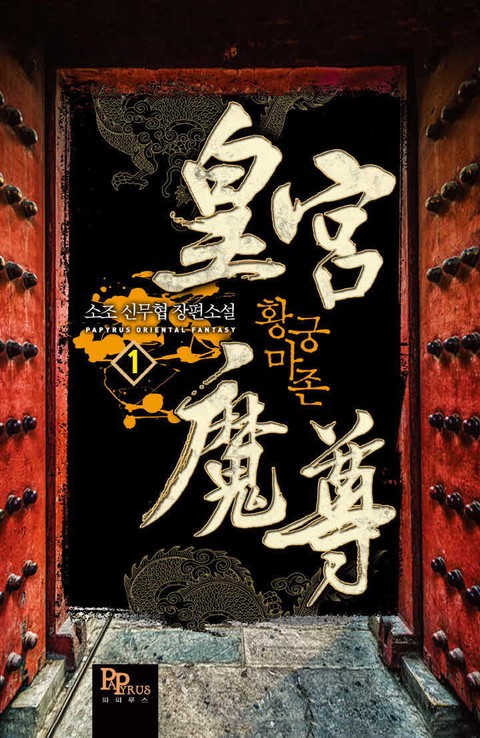 皇宮
소조 신무협 장편소설
PAPYRUS ORIENTAL FANTASY
황궁
마존
1
魔尊
PAPYRUS
파피루스